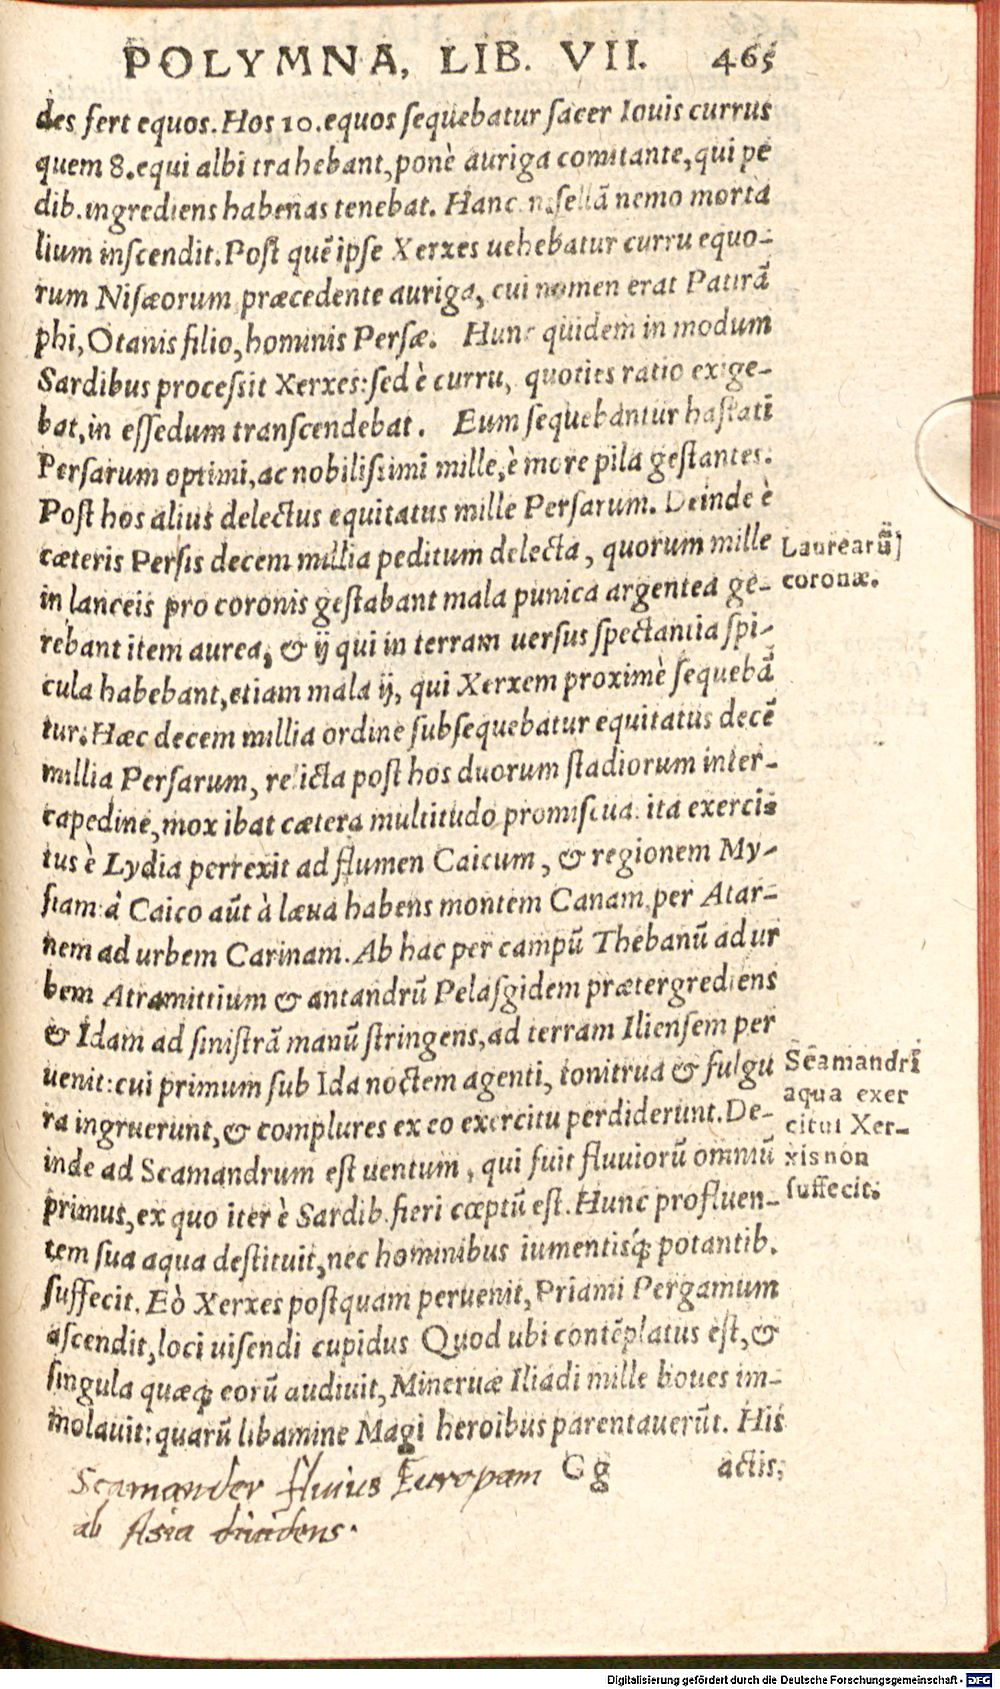 POLYMNA, LIB. VII. 465
des fert equos. Hos 10. equos sequebatur sacer Iouis currus
quem 8. equi albi trahebant, ponè auriga comitante, qui pe
dib. ingrediens habenas tenebat. Hanc sellā nemo morta
lium inscendit. Post quē ipse Xerxes uehebatur curru equo-
rum Nisæorum præcedente auriga, cui nomen erat Patirā
phi, Otanis filio, hominis Persæ. Hunc quidem in modum
Sardibus processit Xerxes: sed è curru, quoties ratio exige-
bat, in essedum transcendebat. Eum sequebantur hastati
Persarum optimi, ac nobilissimi mille, è more pila gestantes:
Post hos alius delectus equitatus mille Persarum. Deinde è
cæteris Persis decem millia peditum delecta, quorum mille
in lanceis pro coronis gestabant mala punica argentea ge-
rebant item aurea, & ij qui in terram uersus spectantia spi-
cula habebant, etiam mala ij, qui Xerxem proximè sequebā
tur. Hæc decem millia ordine subsequebatur equitatus decē
millia Persarum, relicta post hos duorum stadiorum inter-
capedine, mox ibat cætera multitudo promiscua. ita exerci-
tus è Lydia perrexit ad flumen Caicum, & regionem My-
siam: à Caico aūt à læua habens montem Canam, per Atar-
nem ad urbem Carinam. Ab hac per campū Thebanū ad ur
bem Atramittium & antandrū Pelasgidem prætergrediens
& Idam ad sinistrā manū stringens, ad terram Iliensem per
uenit: cui primum sub Ida noctem agenti, tonitrua & fulgu
ra ingruerunt, & complures ex eo exercitu perdiderunt. De-
inde ad Scamandrum est uentum, qui fuit fluuiorū omniū
primus, ex quo iter è Sardib. fieri cœptū est. Hunc profluen-
tem sua aqua destituit, nec hominibus iumentisq́; potantib.
suffecit. Eò Xerxes postquam peruenit, Priami Pergamum
ascendit, loci uisendi cupidus Quod ubi contēplatus est, &
singula quæq; eorū audiuit, Mineruæ Iliadi mille boues im-
molauit: quarū libamine Magi heroibus parentauerūt. His
Gg actis,
Laurearū]
coronæ.
Scamandri
aqua exer
citui Xer-
xis non
suffecit.
Scamander fluius Europam
ab Asia diuidens.
Digitalisierung gefördert durch die Deutsche Forschungsgemeinschaft - DFG